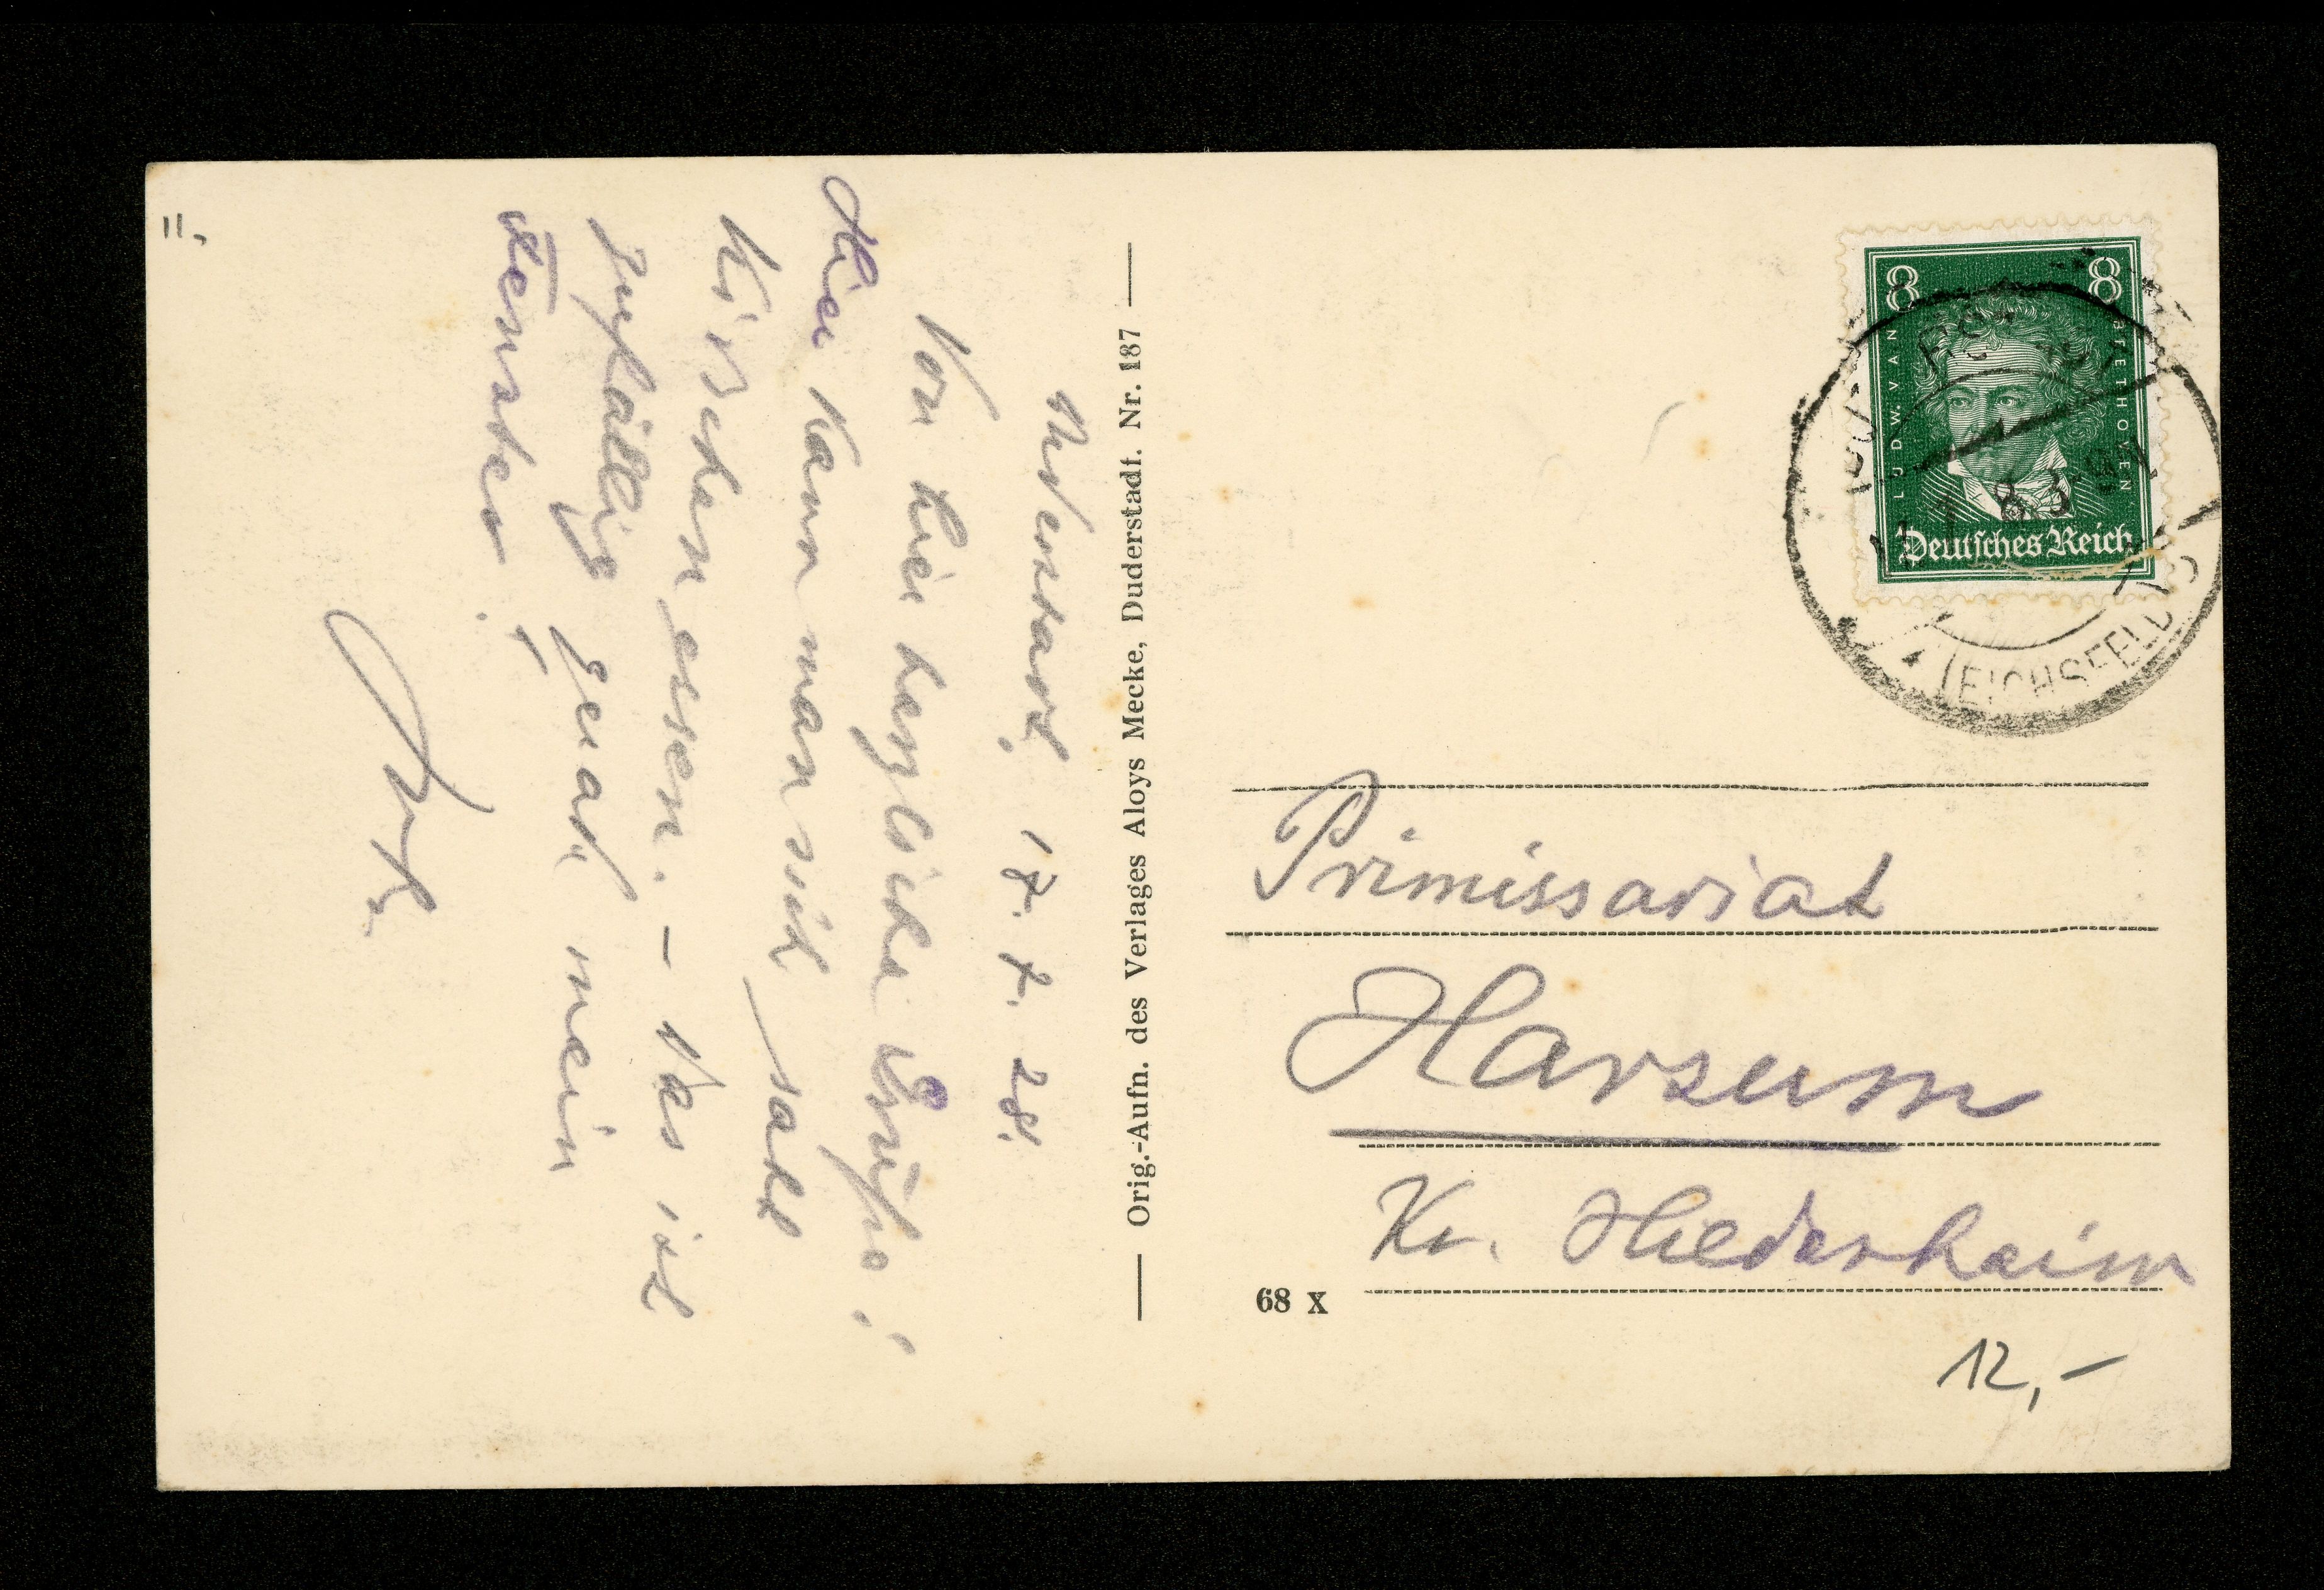 11.
Duderstadt, 17. 7. 28.
Von hier herzliche Grüße!
Hier kann man sich satt
Kirschen essen. – Das ist
zufällig gerad' mein
Orig.-Aufn. des Verlages Aloys Mecke, Duderstadt. Nr. 187
8 8
LUDW. VAN BEETHOVEN
Deutsches Reich
(EICHSFELD)
Primissariat
Harsum
Kr. Hildesheim
68 X
12,-